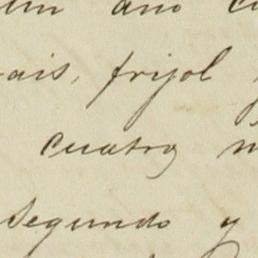 un ano
ais, frijol
cuatro
segundo y